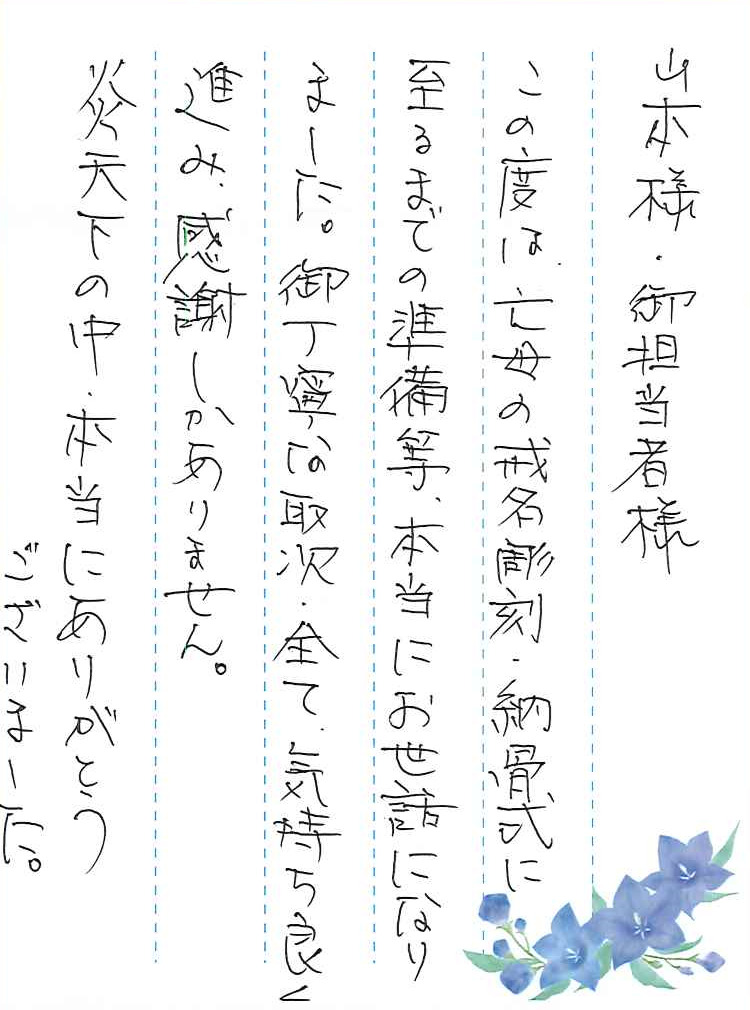 山本様・御担当者様
この度は、亡母の戒名彫刻・納骨式に
至るまでの準備等、本当にお世話になり
ました。御丁寧な取次・全て、気持ち良く
進み、感謝しかありません。
炎天下の中・本当にありがとう
ございました。